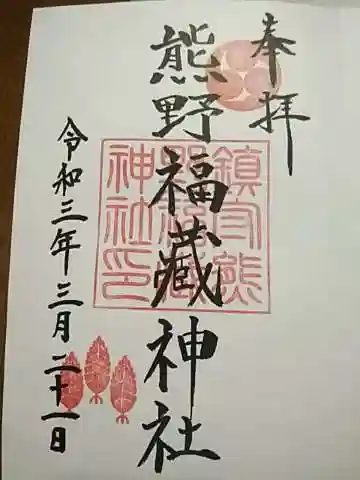 奉拝
熊野福藏神社
令和三年三月二十一日
鎮守熊
野福藏
神社印